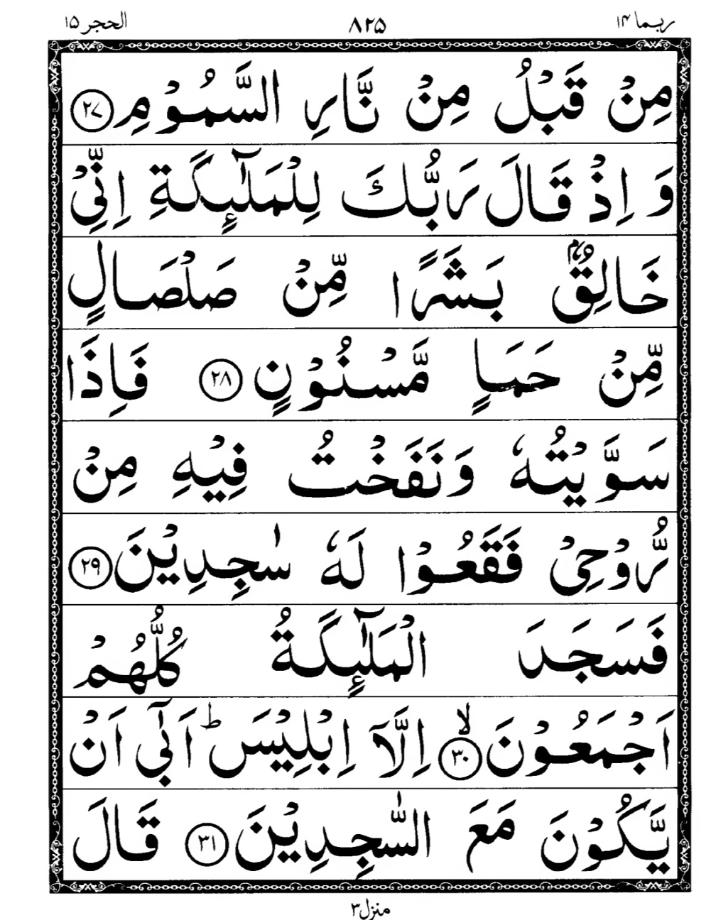 ربما ١٤ ٨٢٥ الحجر ١٥
مِنْ قَبْلُ مِنْ نَّارِ السَّمُوْمِ ﴿٢٧﴾
وَ اِذْ قَالَ رَبُّكَ لِلْمَلٰٓئِكَةِ اِنِّىْ
خَالِقٌۢ بَشَرًا مِّنْ صَلْصَالٍ
مِّنْ حَمَاٍ مَّسْنُوْنٍ ﴿٢٨﴾ فَاِذَا
سَوَّيْتُهٗ وَنَفَخْتُ فِيْهِ مِنْ
رُّوْحِىْ فَقَعُوْا لَهٗ سٰجِدِيْنَ ﴿٢٩﴾
فَسَجَدَ الْمَلٰٓئِكَةُ كُلُّهُمْ
اَجْمَعُوْنَۙ ﴿٣٠﴾ اِلَّاۤ اِبْلِيْسَؕ اَبٰٓى اَنْ
يَّكُوْنَ مَعَ السّٰجِدِيْنَ ﴿٣١﴾ قَالَ
منزل ٣